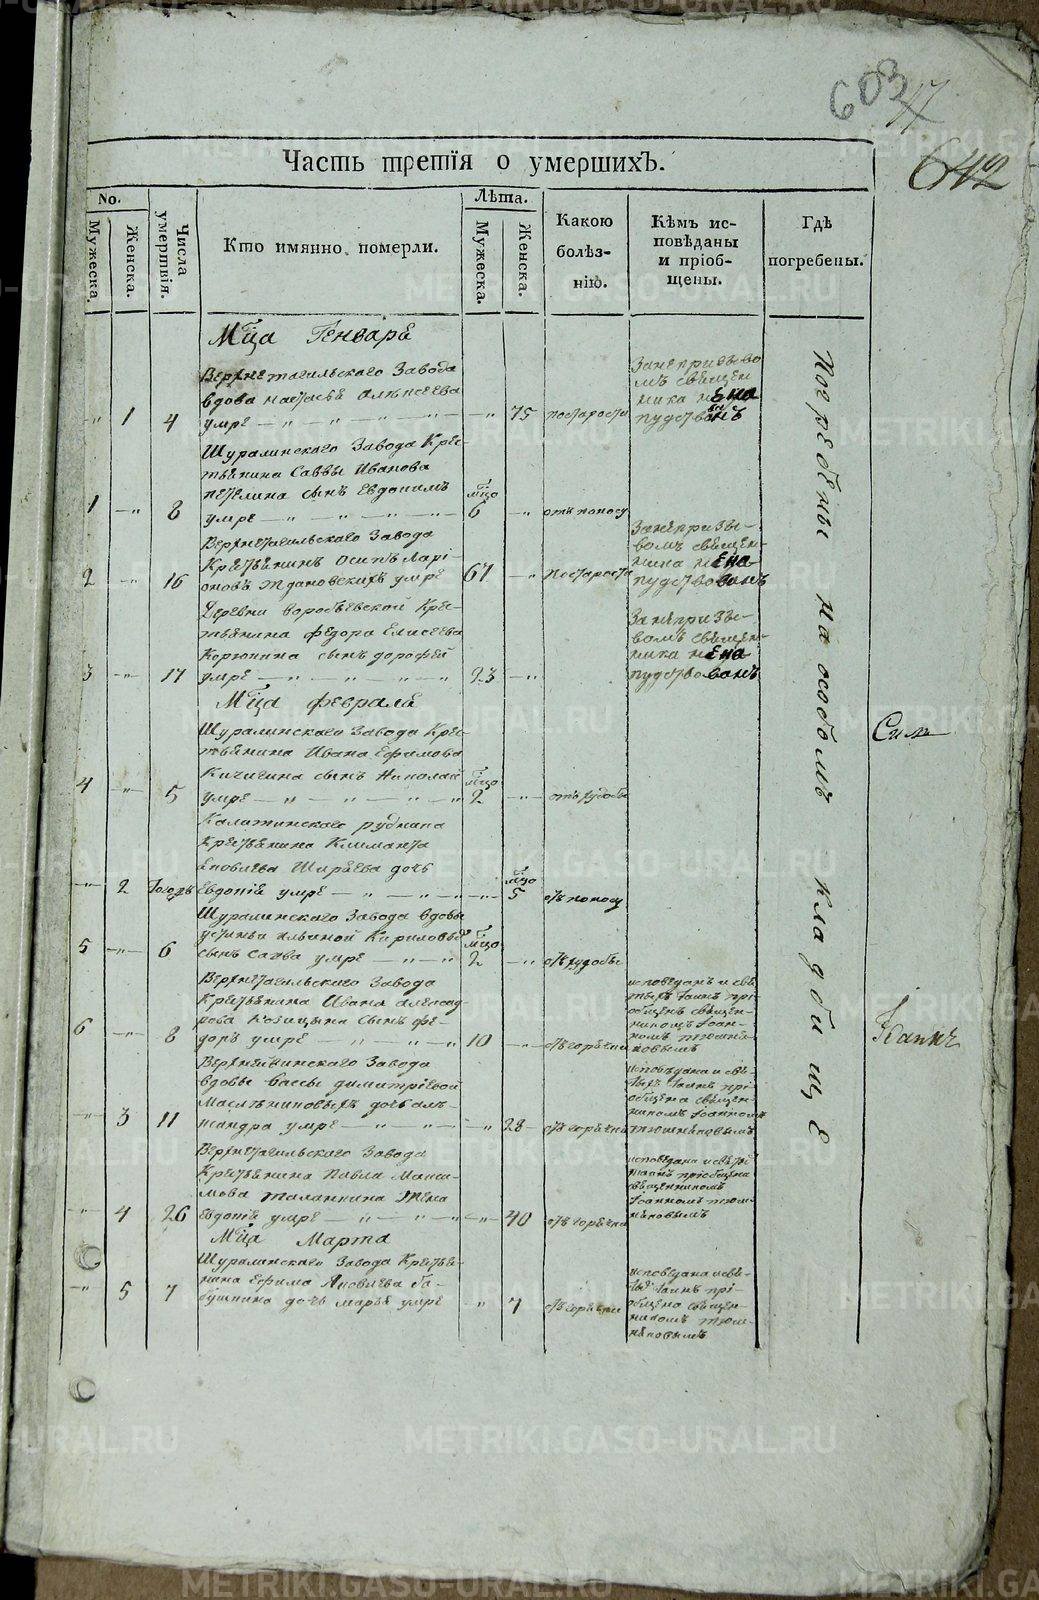 603
47
642
Часть третія о умершихъ.
No.
Мужеска.
Женска.
Числа умертвія.
Кто имянно померли.
Лѣта.
Мужеска.
Женска.
Какою болѣз-нію.
Кѣмъ ис-повѣданы и пріоб-щены.
Гдѣ погребены.
Мца Генваря
Верхнетагильскаго Завода
вдова настасья алексеева
„ 1 4 умре — „ — „ — „ — „ — 75 постарости
Занепризыво
мъ священ
ника нена
пудствована
Шуралинскаго Завода Крес
тьянина Саввы Иванова
сынъ Евдокимъ мцо
1 — „ 8 умре — „ — „ — „ — 6 — „ отъ поносу
Верхнетагильскаго Завода
Крестьянинъ осипъ Лари
2 „ 16 оновъ ждановскихъ умре 67 — „ постарости
Занепризы-
вомъ священ-
ника нена
пудствованъ
Деревни воробьевской Крес-
тьянина федора Елисеева
Корюкина сынъ дорофей
3 — „ 17 умре — „ — „ — „ — 23 — „
Занепризы-
вомъ священ-
ника нена
пудствованъ
Мца февраля
Шуралинскаго Завода Крес
тьянина Ивана Ефимова
Кичигина сынъ Николай мцо
4 — „ 5 умре — „ — „ — „ 2 — „
Калатинскаго рудника
Крестьянина Климанта
яковлева Ширяева дочь
— „ 2 Тогожъ евдокія умре — „ — „ — „ — мцо 5 отъ поносу
Шуралинскаго Завода вдовы
устиньи ильиной Кириловых мцо
5 — „ — 6 сынъ савва умре — „ — „ 2 — „
Верхнетагильскаго Завода
Крестьянина Ивана александ
рова сынъ фе-
6 — „ — 8 доръ умре — „ — „ — „ 10 — „ отъ горячки
исповеданъ и свя
тыхъ таинъ прі
общенъ священ-
никомъ Іоан-
номъ
Верхнейвинскаго Завода
вдовы вассы димитріевой
Масленниковыхъ дочь алек-
— „ 3 11 сандра умре — „ — „ — „ 28 отъ горячки
исповедана и свя-
тыхъ таинъ прі
общена священ-
никомъ Іоанномъ
Верхнетагильскаго Завода
Крестьянина Павла Макси-
мова таланкина жена
„ 4 26 евдокія умре — „ — „ — „ — 40 отъ горячки
исповедана и святы
таинъ пріобщена
священникомъ
Іоанномъ
Мца Марта
Шуралинскаго Завода Крестья-
нина Ефима Яковлева Га-
„ 5 7 бушкина дочь марья умре „ 7 отъ горячки
исповедана и свя-
таинъ прі-
общена священ-
никомъ
Погребены на особомъ кладбищѣ